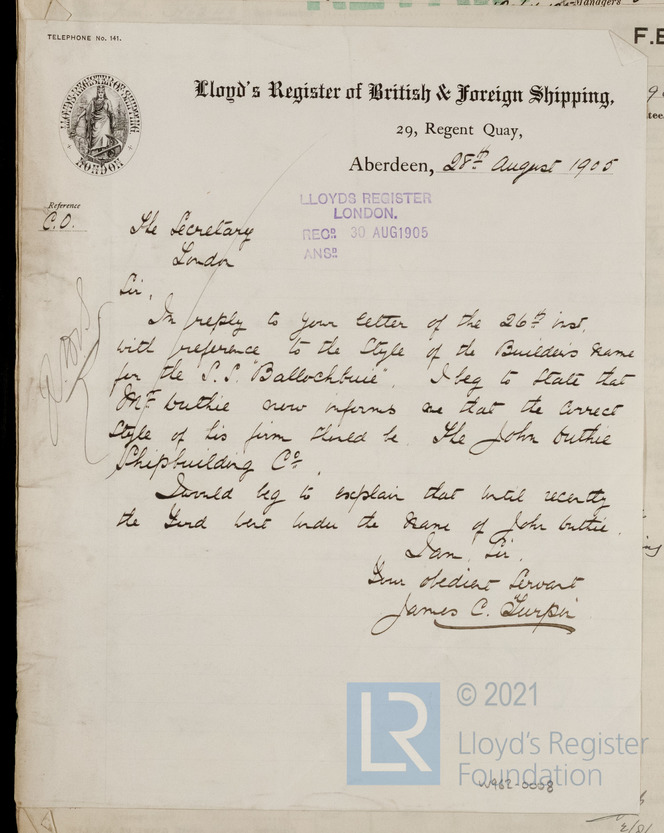 Managers
TELEPHONE No. 141.
F.E
LLOYD'S REGISTER OF SHIPPING
LONDON
Lloyd's Register of British & Foreign Shipping,
29, Regent Quay,
Aberdeen, 28th August 1905
Reference
C.O.
LLOYDS REGISTER
LONDON.
RECD. 30 AUG 1905
ANSD.
The Secretary
London
Sir,
In reply to your letter of the 26th inst.
with reference to the Style of the Builders name
for the S.S. "Ballochbuie", I beg to state that
Mr Duthie now informs me that the correct
Style of his firm should be The John Duthie
Shipbuilding Co.
I would beg to explain that until recently
the Yard went under the name of John Duthie.
I am, Sir,
Your obedient Servant
James C. Turpin
LR
© 2021
Lloyd's Register
Foundation
W962-0008